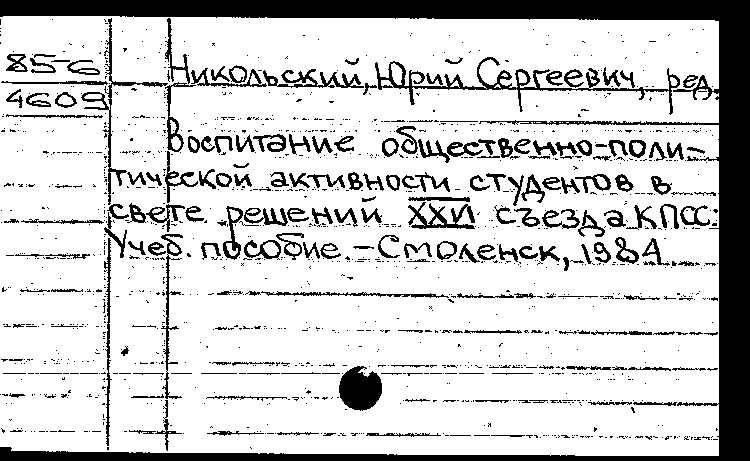 85-6
4609
Никольский, Юрий Сергеевич, ред.
Воспитание общественно-поли-
тической активности студентов в
свете решений XXVI съезда КПСС:
Учеб. пособие. - Смоленск, 1984